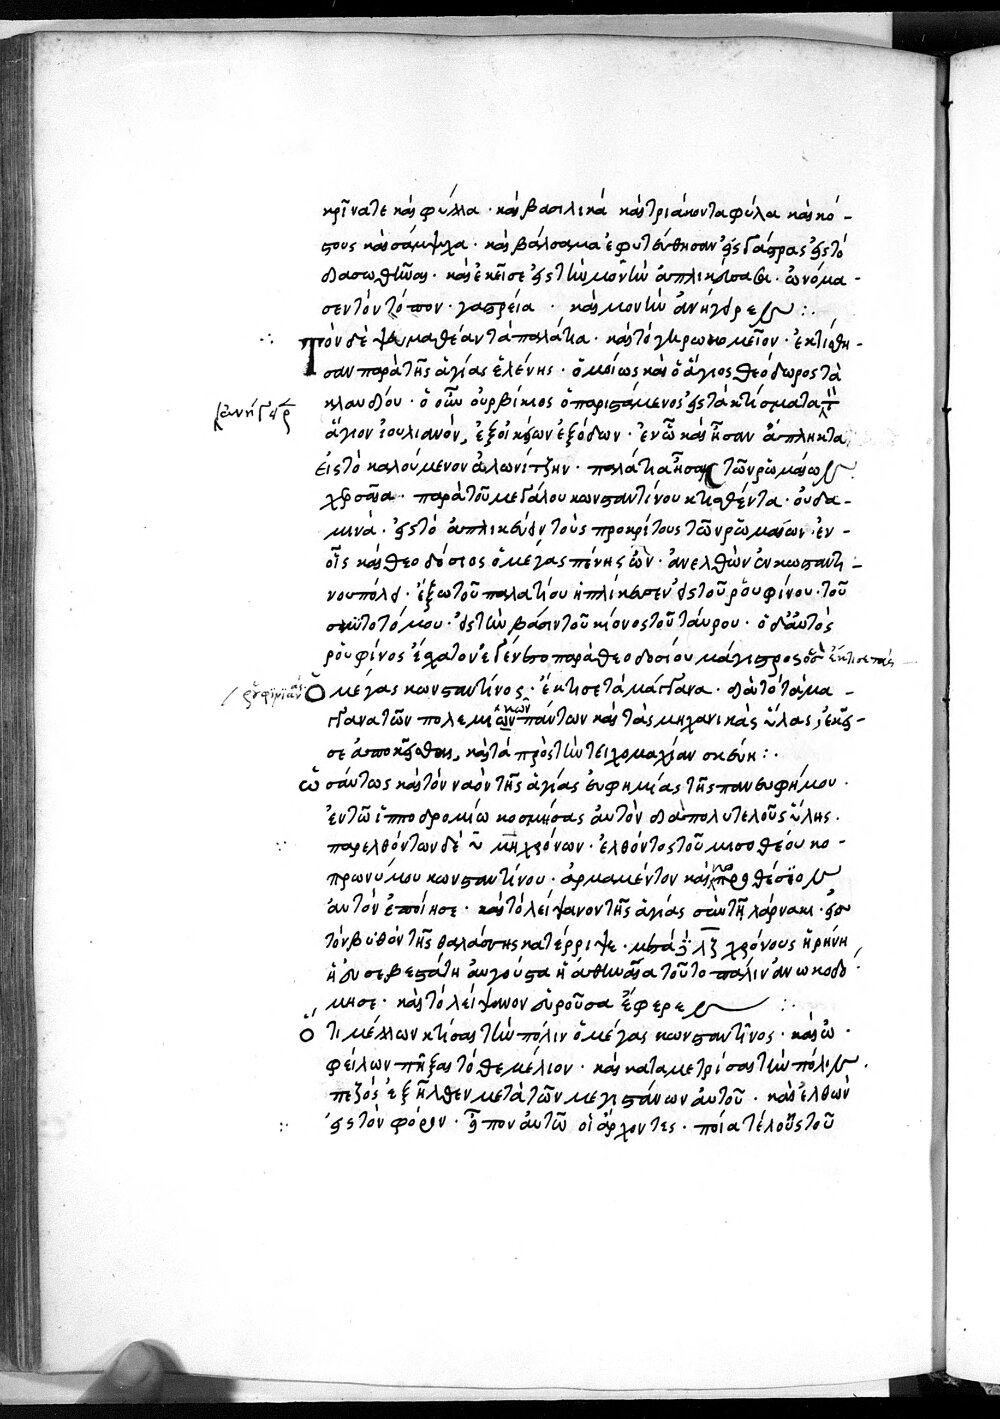 κρῖνα τε καὶ φύλλα · καὶ βασιλικὰ καὶ τριακοντάφυλα καὶ κό-
στους καὶ σάμψυχα · καὶ βάλσαμα ἐφυτεύθησαν εἰς γάστρας εἰς τὸ
διασωθῆναι · καὶ ἐκεῖσε εἰς τὴν μονὴν ἀπλικεῦσαι · ὠνόμα-
σεν τὸν τόπον · γαστρεία · καὶ μονὴν ἀνήγειρεν :·
Τὸν δὲ ψαμαθέαν τὰ παλάτια · καὶ τὸ γηρωκομεῖον · ἐκτίσθη-
σαν παρὰ τῆς ἁγίας ἑλένης · ὁμοίως καὶ ὁ ἅγιος θεόδωρος τὰ
κλαυδίου · ὁ οὖν οὐρβίκιος ὁ παριστάμενος εἰς τὰ κτίσματα τὸν
ἀνήγειρεν
ἅγιον ἰουλιανὸν, ἐξ οἰκείων ἐξόδων · ἐν ὧ καὶ ἦσαν ἄπληκτα
εἰς τὸ καλούμενον ἀλωνίτζην · παλάτια ἦσαν τῶν ῥωμαίων
χερσαῖα · παρὰ τοῦ μεγάλου κωνσταντίνου κτισθέντα · οὐδα-
μινὰ · εἰς τὸ ἀπλικεύειν τοὺς προκρίτους τῶν ῥωμαίων · ἐν
οἷς καὶ θεοδόσιος ὁ μέγας πένης ὢν · ἀνελθὼν ἐν κωνσταντι-
νουπόλει · ἔξω τοῦ παλατίου ἠπλίκευσεν εἰς τοῦ ῥουφίνου · τοῦ
σκυτοτόμου · εἰς τὴν βάσιν τοῦ κίονος τοῦ ταύρου · ὁ δὲ αὐτὸς
ῥουφίνος ἔσχατον ἐγένετο παρὰ θεοδοσίου μάγιστρος ὅς ἔκτισε τὰς
ῥουφινιανάς
Ὁ μέγας κωνσταντίνος · ἔκτισε τὰ μάγγανα · διὰ τὸ τὰ μά-
γγανα τῶν πολεμικῶν πάντων καὶ τὰς μηχανικὰς ὕλας, ἐκεῖ-
σε ἀποκεῖσθαι, καὶ τὰ πρὸς τὴν τειχομαχίαν σκεύη :·
ὡσαύτως καὶ τὸν ναὸν τῆς ἁγίας εὐφημίας τῆς πανευφήμου ·
ἐν τῶ ἱπποδρομίω κοσμήσας αὐτὸν διὰ πολυτελοῦς ὕλης ·
παρελθόντων δὲ χρόνων · ἐλθόντος τοῦ μισοθέου κο-
πρωνύμου κωνσταντίνου · ἀρμαμέντον καὶ κοπροθέσιον
αὐτὸν ἐποίησε · καὶ τὸ λείψανον τῆς ἁγίας σὺν τῆ λάρνακι · εἰς
τὸν βυθὸν τῆς θαλάσσης κατέρριψε · μετὰ λζ χρόνους ἡ ρήνη
ἡ εὐσεβεστάτη αὐγούστα ἡ ἀθηναία τοῦτο πάλιν ἀνωκοδό-
μησε · καὶ τὸ λείψανον εὑροῦσα ἔφερε :·
Ὅτι μέλλων κτίσαι τὴν πόλιν ὁ μέγας κωνσταντῖνος · καὶ ὠ-
φείλων πῆξαι τὸ θεμέλιον · καὶ καταμετρίσαι τὴν πόλιν
πεζὸς ἐξῆλθεν μετὰ τῶν μεγιστάνων αὐτοῦ · καὶ ἐλθὼν
εἰς τὸν φόρον · εἶπον αὐτῶ οἱ ἄρχοντες · ποία τέλους τοῦ